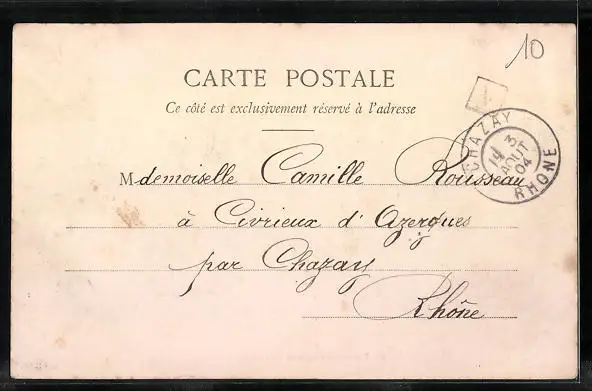 10
CARTE POSTALE
Ce côté est exclusivement réservé à l'adresse
CHAZAY
3
AOUT
04
RHONE
Mdemoiselle Camille Rousseau
à Civrieux d'Azergues
par Chazay
Rhône